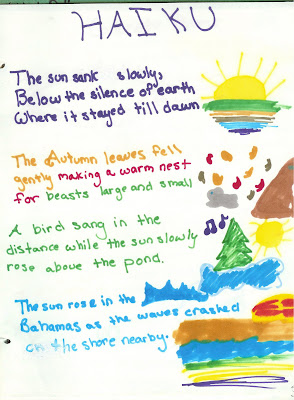 HAIKU
The sun sank slowly,
Below the silence of earth
Where it stayed till dawn
The Autumn leaves fell
gently making a warm nest
for beasts large and small
A bird sang in the
distance while the sun slowly
rose above the pond.
The sun rose in the
Bahamas as the waves crashed
on the shore nearby.